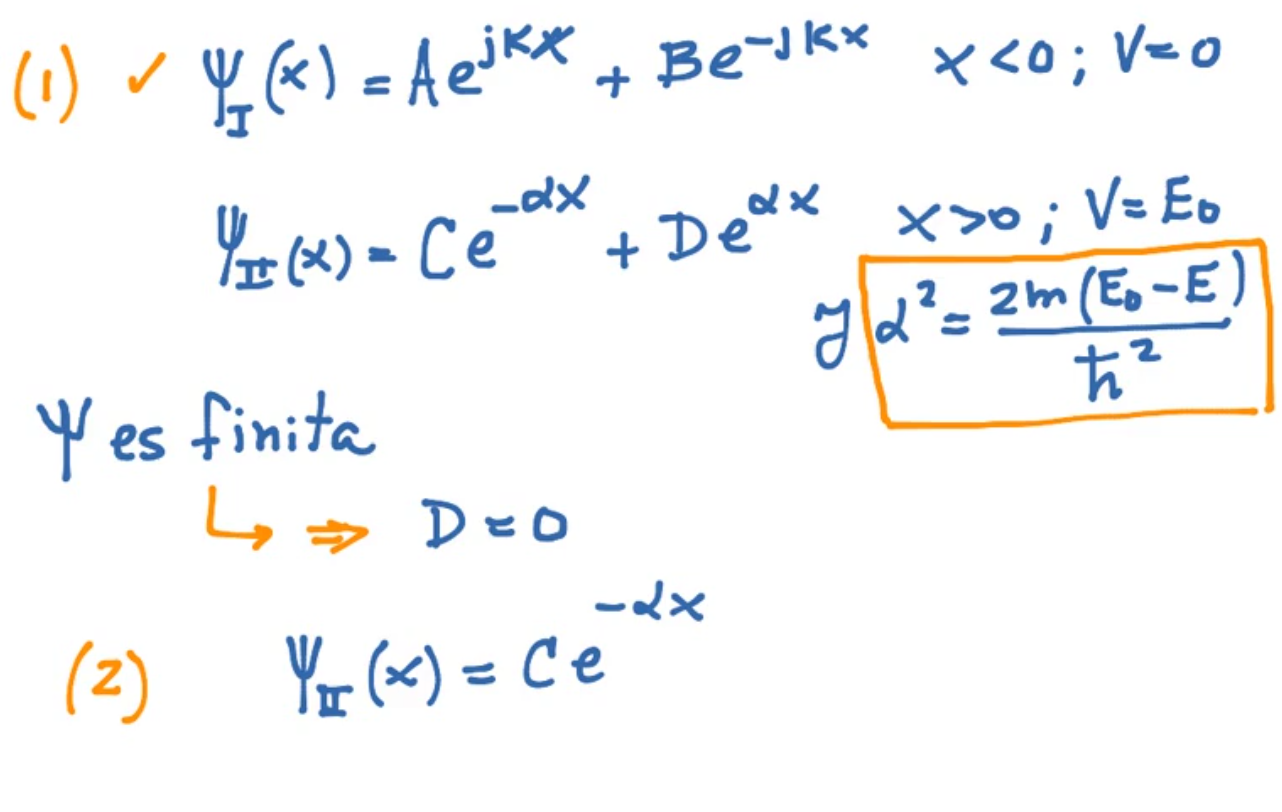 (1) ✓ Ψ_I(x) = Ae^{jKx} + Be^{-jKx} x<0 ; V=0
Ψ_II(x) = Ce^{-αx} + De^{αx} x>0 ; V=E₀
y α² = 2m(E₀-E)/ħ²
Ψ es finita
↳ ⇒ D = 0
(2) Ψ_II(x) = Ce^{-αx}